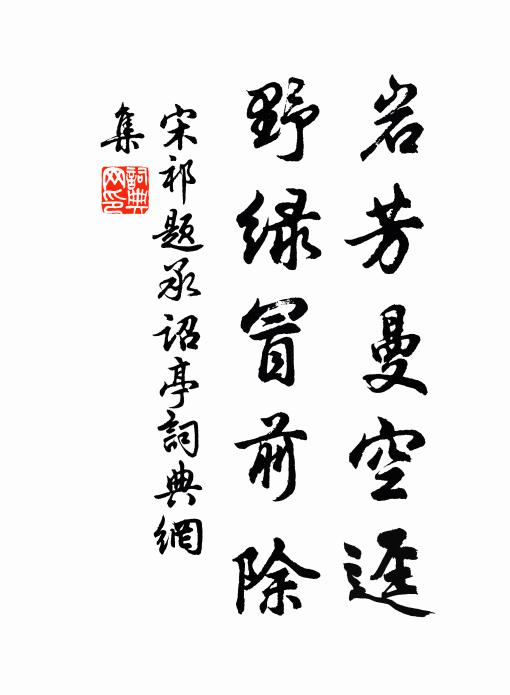 岩芳曼空迳
野绿冒前除
宋祁题承诏亭詞典網
集
詞典
网印